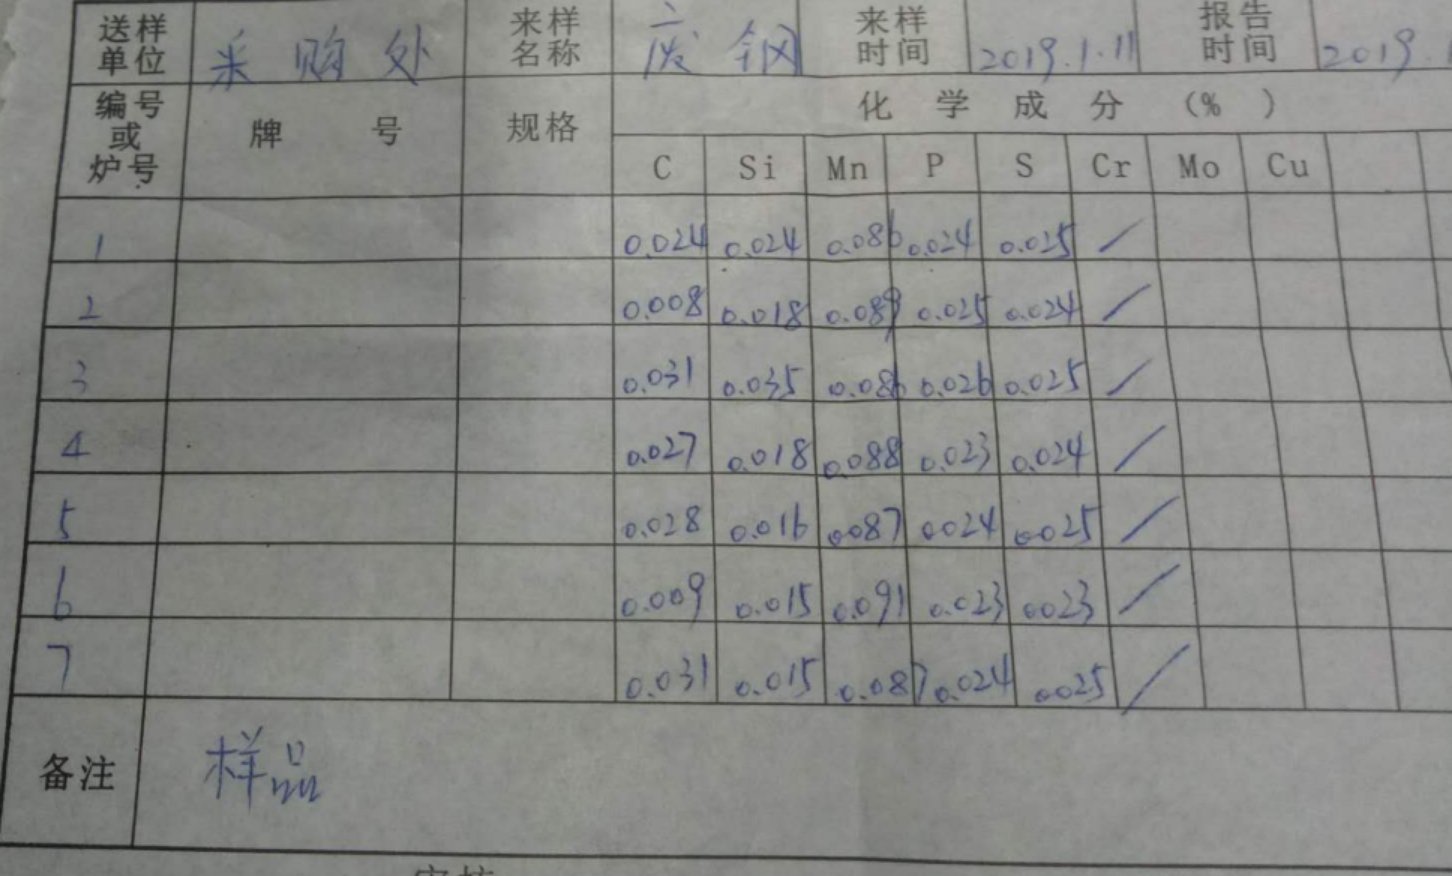 送样单位 采购处 来样名称 废钢 来样时间 2019.1.11 报告时间 2019.1
编号或炉号 牌号 规格 化学成分(%)
C Si Mn P S Cr Mo Cu
1 0.024 0.024 0.086 0.024 0.025 /
2 0.008 0.018 0.089 0.025 0.024 /
3 0.031 0.035 0.086 0.026 0.025 /
4 0.027 0.018 0.088 0.023 0.024 /
5 0.028 0.016 0.087 0.024 0.025 /
6 0.009 0.015 0.091 0.023 0.023 /
7 0.031 0.015 0.087 0.024 0.025 /
备注 样品